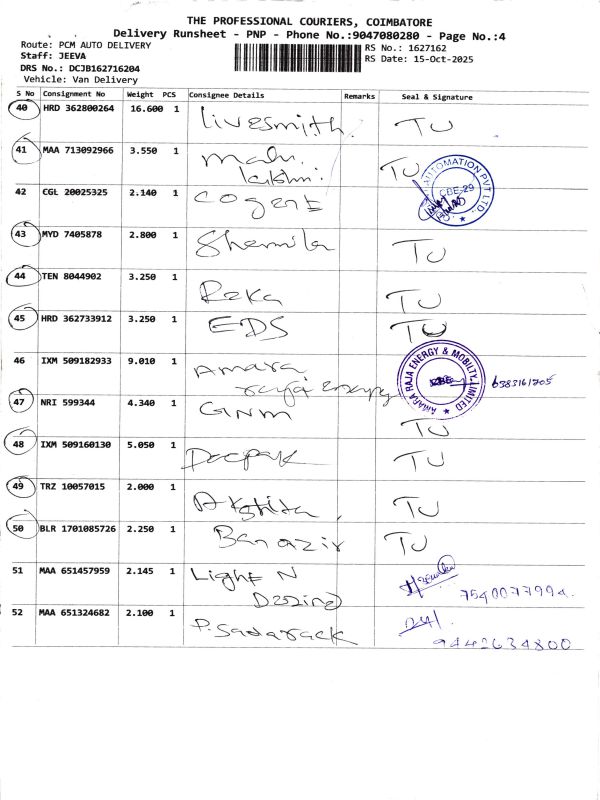 THE PROFESSIONAL COURIERS, COIMBATORE
Delivery Runsheet - PNP - Phone No.:9047080280 - Page No.:4
Route: PCM AUTO DELIVERY
RS No.: 1627162
Staff: JEEVA
RS Date: 15-Oct-2025
DRS No.: DCJB162716204
Vehicle: Van Delivery
S No Consignment No Weight PCS Consignee Details Remarks Seal & Signature
40 HRD 362800264 16.600 1 Livesmith TU
41 MAA 713092966 3.550 1 Mahi TU
Lakshmi
AUTOMATION PVT LTD.
CBE-29
42 CGL 20025325 2.140 1 Cogent
43 MYD 7405878 2.800 1 Shemila TU
44 TEN 8044902 3.250 1 Reka TU
45 HRD 362733912 3.250 1 EDS TU
46 IXM 509182933 9.010 1 Amara
raja Energy
AMARA RAJA ENERGY & MOBILITY LIMITED
CBE
6383161705
47 NRI 599344 4.340 1 GNM TU
48 IXM 509160130 5.050 1 Deepak TU
49 TRZ 10057015 2.000 1 Akshita TU
50 BLR 1701085726 2.250 1 Banazir TU
51 MAA 651457959 2.145 1 Light N
7540077994.
52 MAA 651324682 2.100 1 P. Sadarack
9442634800